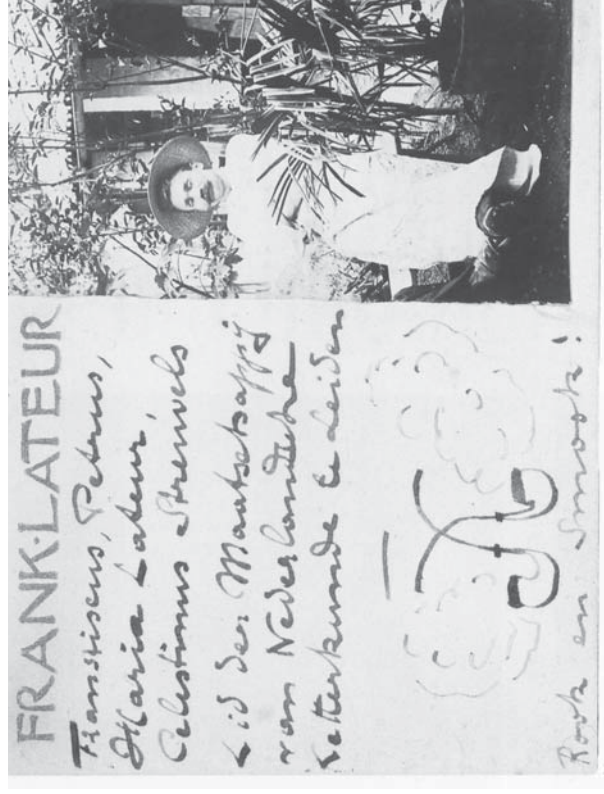 FRANK·LATEUR
Franciscus, Petrus,
Maria Lateur,
Celestinus Streuvels
Lid der Maatschappij
van Nederlandsche
Letterkunde te Leiden
Rook en Smook!